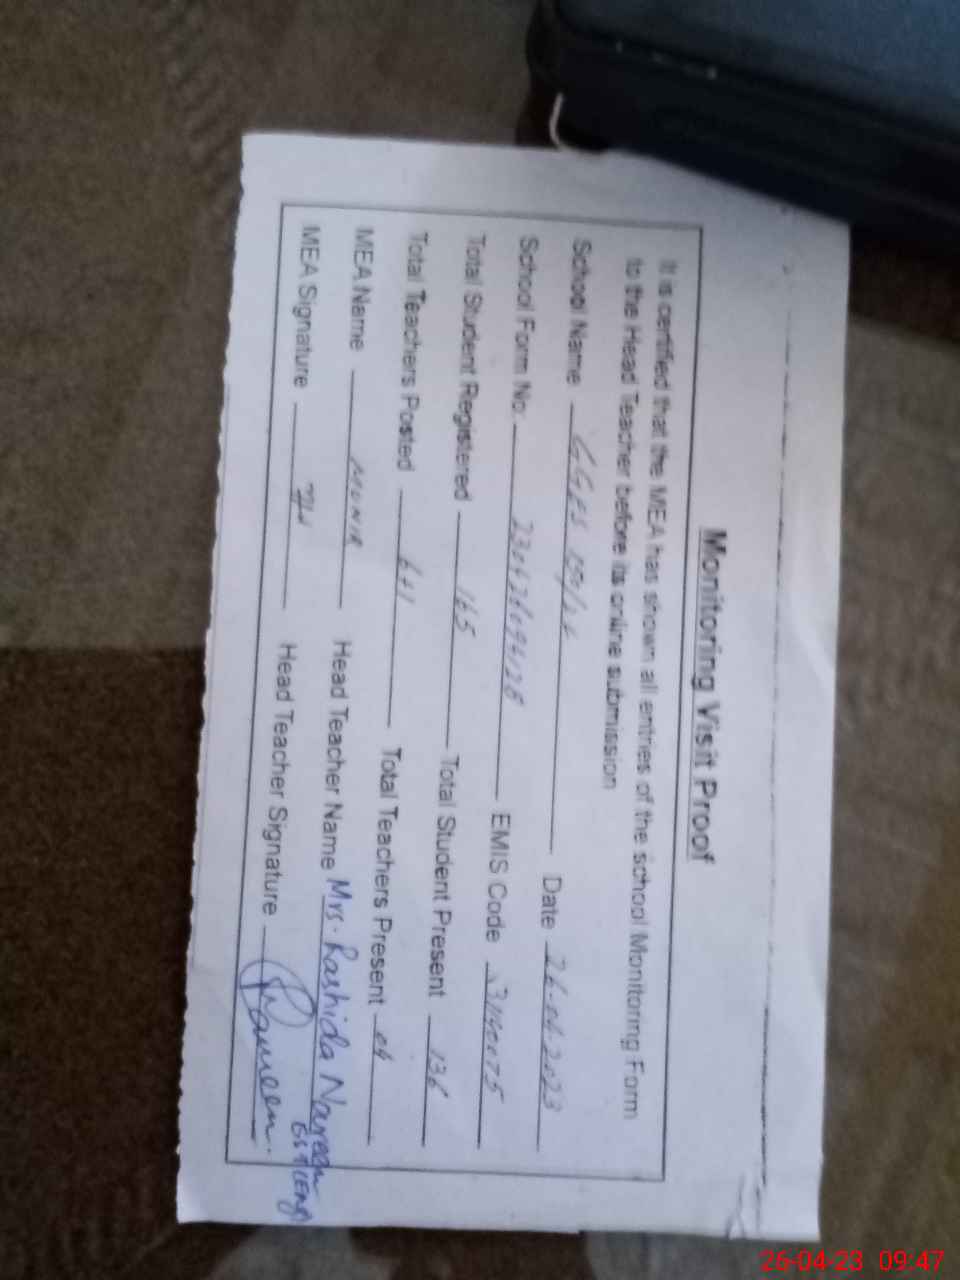 Monitoring Visit Proof
It is certified that the MEA has shown all entries of the school Monitoring Form
to the Head Teacher before its online submission
School Name GGES Date 26-04-2023
School Form No. EMIS Code
Total Student Registered 165 Total Student Present 136
Total Teachers Posted Total Teachers Present 04
MEA Name MUNIR Head Teacher Name Mrs. Rashida Nasreen
MEA Signature Head Teacher Signature
26-04-23 09:47